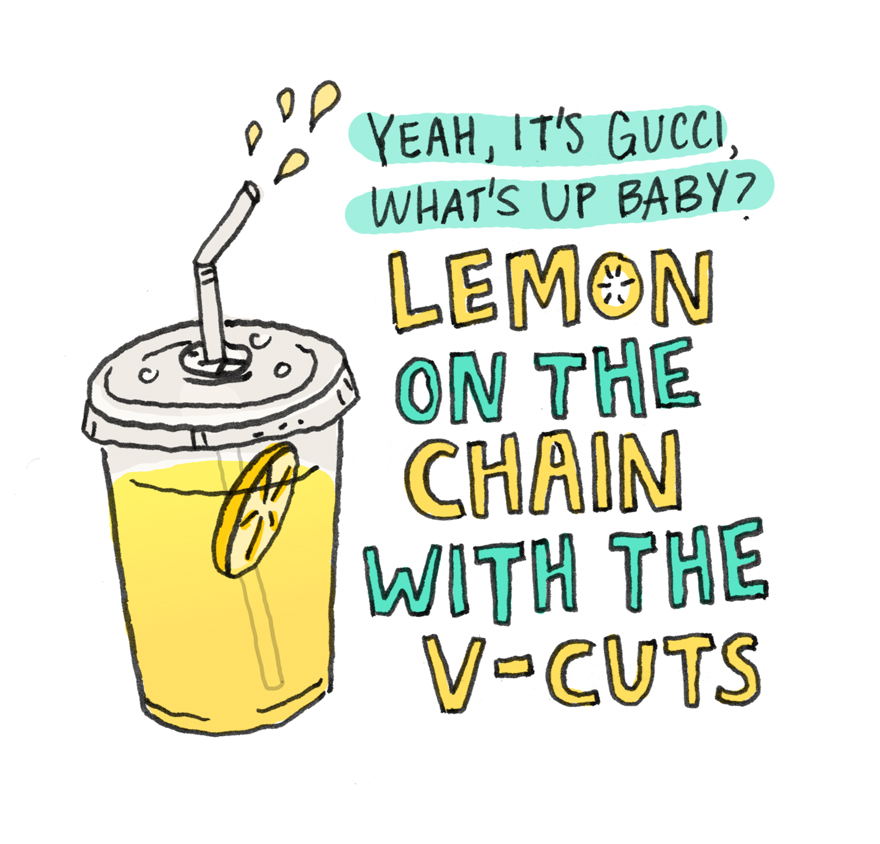 YEAH, IT'S GUCCI,
WHAT'S UP BABY?
LEMON
ON THE
CHAIN
WITH THE
V-CUTS